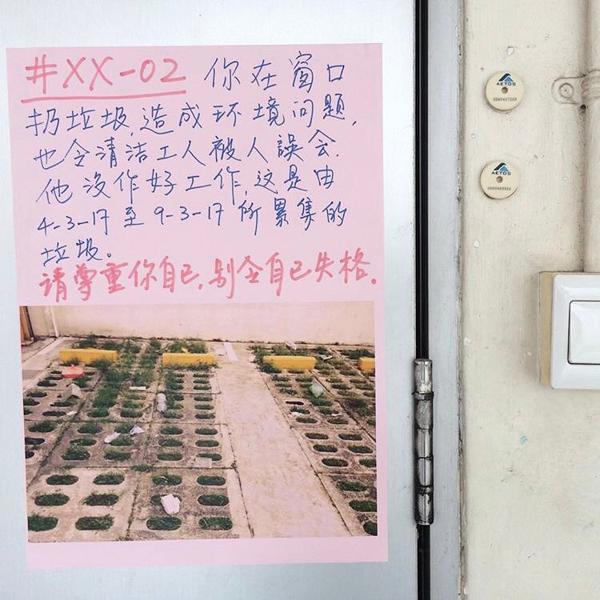 #XX-02 你在窗口
扔垃圾,造成环境问题,
也令清洁工人被人誤会.
他没作好工作,这是由
4-3-17至9-3-17所累集的
垃圾。
请尊重你自己,别令自己失格.
AETOS
AETOS